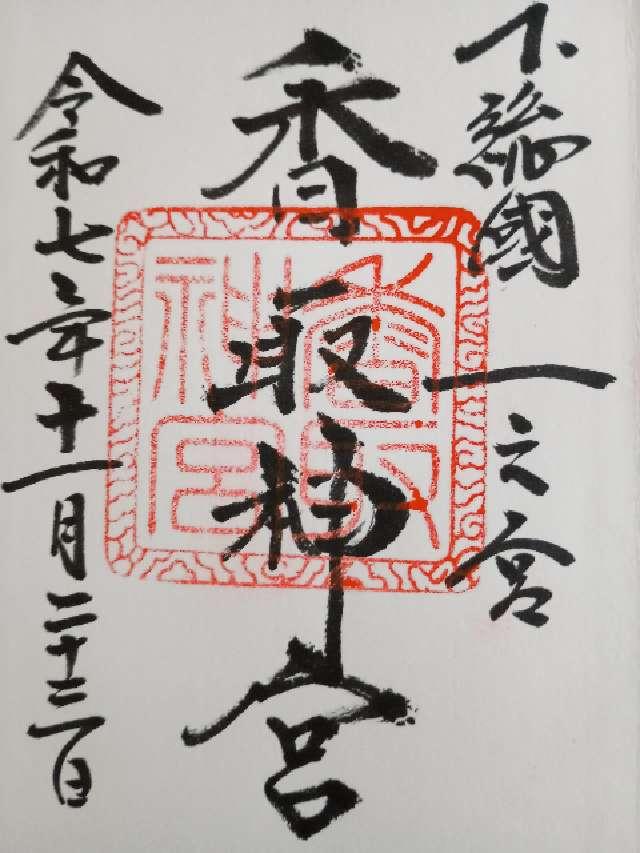 下総國一之宮
香取神宮
令和七年十一月二十三日
香取神宮